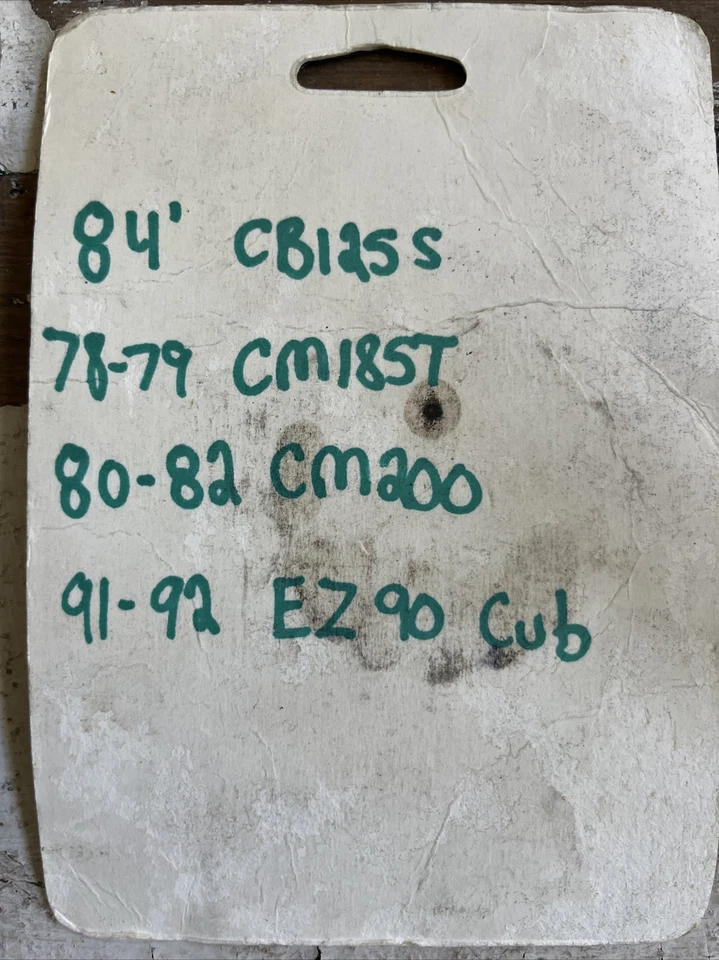 84' CB125S
78-79 CM185T
80-82 CM200
91-92 EZ90 Cub